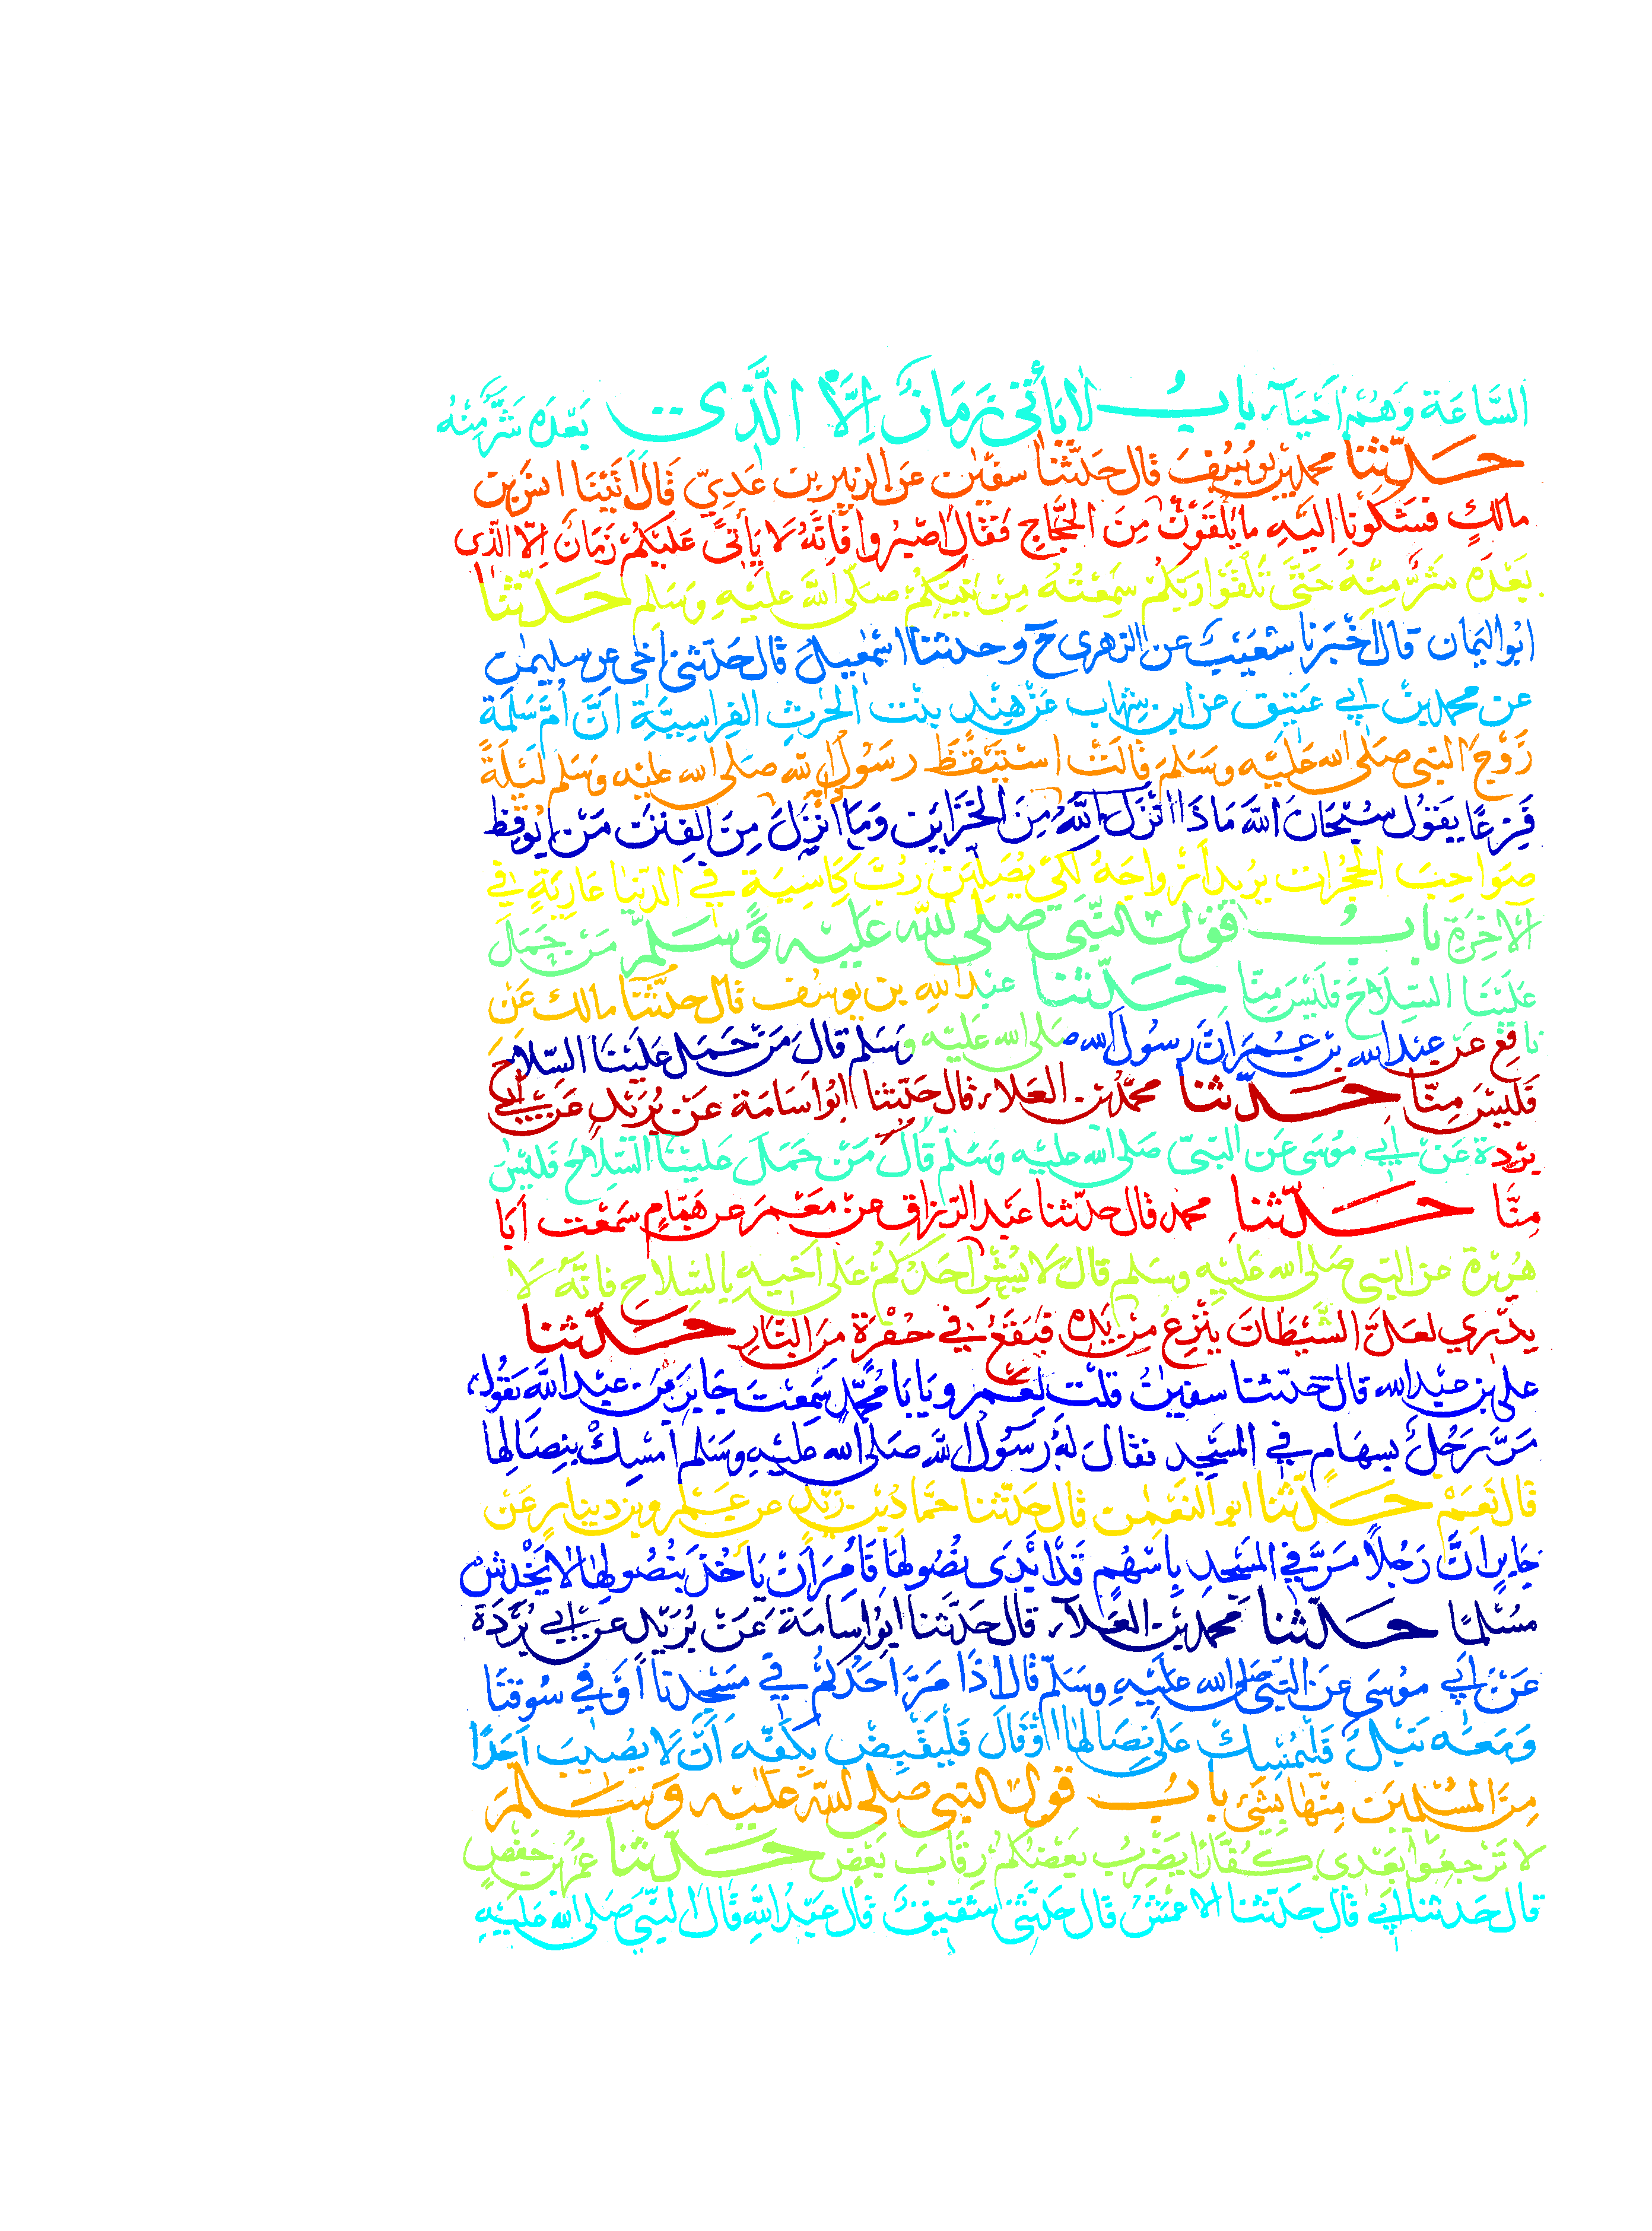 السَّاعَة وَهُمْ اَحْيَآء بابُ لا يَأتى زَمَانٌ اِلَّا الَّذى بَعْدَه شَرٌّ مِنْهُ
حَدّثنا محمد بن يوسُفَ قال حَدَّثَنَا سفيٰن عن الزبير بن عَدِيّ قَالَ اَتَيْنَا انس بن
مالكٍ فشكَوْنا اِليَهِ ما يَلْقَوْنَ مِنَ الحَجَّاجِ فَقَالَ اصْبِرُوا فَاِنَّهُ لَا يَأتى عَلَيْكُمْ زَمَانٌ اِلّا الذى
بَعْدَه شَرٌّ مِنْهُ حَتَّى تَلْقَوْا رَبَّكُمْ سَمِعْتُهُ مِنْ نَبِيّكُمْ صَلّى اللهُ عَليْهِ وَسَلم حَدّثنا
ابُو اليَمَان قال اَخْبَرنا شعَيْبٌ عن الزهرى ح وحدثنا اسْمٰعِيلُ قال حَدّثنى اخى عن سليمٰن
عن محمد بن ابي عَتيق عن ابن شِهَاب عَنْ هِنْد بنْت الحٰرثِ الفِرَاسِيَّةِ اَنَّ اُمّ سَلَمَة
زَوْجَ النبى صَلى الله عَليْهِ وسَلمَ قالَتْ اسْتَيْقَظَ رسَوُل الله صَلى الله عليْه وَسَلم لَيْلَةً
فَزِعًا يَقوُل سُبْحَانَ اللهَ مَاذَا انْزَلَ اللهُ مِنَ الخَزَاينِ وَمَا اُنْزِلَ مِنَ الفِتَن مَنْ يُوقِظ
صَوَاحِبَ الحُجُرَات يُرِيد اَزْواجَهُ لكىْ يُصَلّينَ رُبَّ كَاسِيَة في الدّنيا عَارِيَةٍ في
الآخِرَةِ بابُ قوْل النَّبيّ صلى الله عَليْه وَسَلمَّ مَن حَمَلَ
عَلَيْنَا السّلاحَ فليْسَ مِنّا حَدّثنا عبْد الله بن يوسُف قال حدّثَنا مالك عَنْ
نافِع عنْ عبْد الله بن عُمَر انَّ رسوُل الله صَلى الله عَليْه وسَلم قال مَنْ حَمَل عَلَيْنَا السّلاحَ
فَليْسَ مِنّا حَدّثنا محمّد بْن العَلاء قال حَدّثنا ابُو اسَامَة عَنْ بُرَيْد عَنْ ابي
بُرْدة عَنْ ابي موُسَى عَن النبّى صَلى الله عليْه وَسَلّم قال مَنْ حَمَلَ عَليْنَا السّلاحَ فَليْسَ
مِنَّا حَدّثنا محمد قال حدّثنا عَبْد الرّزاق عنْ مَعْمَر عن هَمّامٍ سَمعْت اَبَا
هُرَيْرة عن النبى صَلى الله عَليْهِ وسَلم قال لَا يُشيْرُ اَحَدُكُمْ عَلى اَخيهِ بالسّلاحِ فانّهُ لَا
يدْري لعَلَّ الشّيْطَانَ يَنْزِعُ مِنْ يَدِه فيَقَعُ في حُفْرَة مِنَ النّار حَدّثنا
على بن عبْد الله قال حَدّثنا سفيٰنُ قلْت لِعَمْرو يَا بَا مُحمَّدٍ سَمعْت جَابر بْنَ عبْد اللهَ يَقُول
مَرَّ رَجُلٌ بسِهَام في المَسْجِد فقالَ لَهُ رَسُول الله صَلى الله عَليْهِ وَسَلم اَمْسِكْ بِنِصَالِها
قال نَعَمْ حَدّثنا ابو النّعْمٰن قال حَدّثنا حَمّادُ بْن زَيْد عن عَمْرو بن دينار عَنْ
جَابِر انَّ رَجُلاً مَرَّ في المسْجدِ بِاَسْهُمٍ قدْ اَبْدَى نُصُولَهَا فَاُمِرَ اَنْ يَاخُذَ بِنُصُولِهَا لَا يَخْدِشُ
مُسْلِمًا حَدّثنا محمد بْن العَلآء قال حَدّثَنا ابُو اسَامَة عَنْ بُرَيْد عن ابي بُرْدَة
عَنْ ابي موُسَى عَن النّبيّ صَلى الله عَليْهِ وسَلّم قال اذَا مَرَّ اَحَدُكُمْ في مَسْجِدنا اَوْ في سُوقنَا
وَمَعَه نَبْلٌ فَليُمْسِك عَلى نِصَالهَا اَوْ قَالَ فَليَقْبِضْ بِكَفّهِ اَنْ لَا يُصيْبَ اَحَدًا
مِنَ المُسْلمينَ مِنْهَا بشَىْ بابُ قول النبى صلى الله عَليْه وَسَلمَ
لَا تَرْجِعُوا بَعْدى كُفّارًا يَضْرِبُ بَعْضُكُمْ رِقَابَ بَعْضٍ حَدّثنا عُمَرُ بن حَفْصٍ
قال حَدثنا ابي قال حَدّثنا الاعْمَشُ قال حَدّثَنَا شَقيقٌ قال عَبْد اللهِ قال النّبيّ صَلى الله عَليْهِ